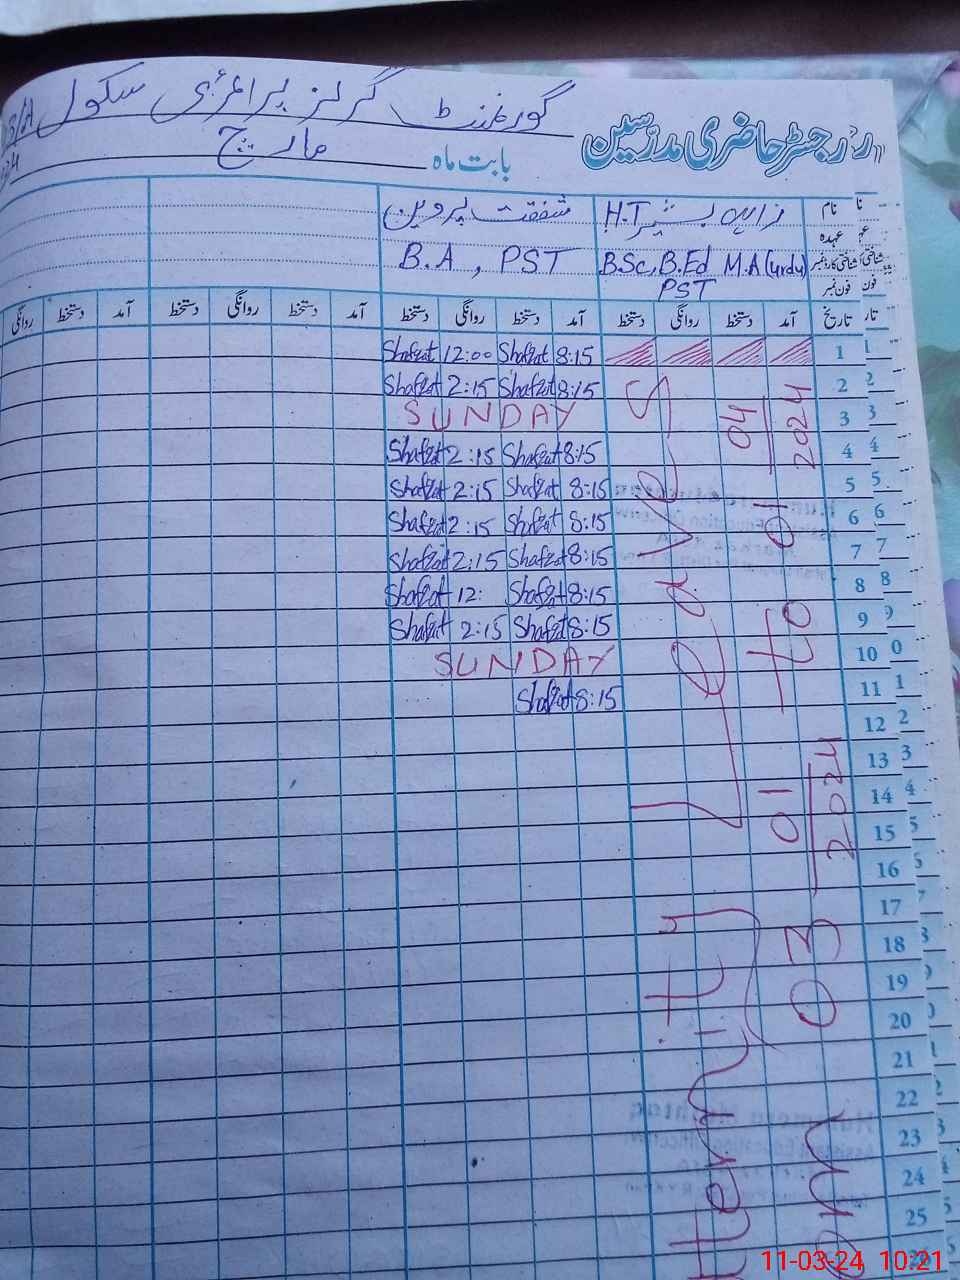 رجسٹر حاضری مدرسین
گورنمنٹ گرلز پرائمری سکول
بابت ماہ مارچ
نام زاہدہ بشیر H.T شفقت پروین
عہدہ
شناختی کارڈ نمبر B.Sc, B.Ed M.A (urdu) B.A , PST
فون نمبر PST
تاریخ آمد دستخط روانگی دستخط آمد دستخط روانگی دستخط آمد دستخط روانگی دستخط آمد دستخط روانگی
1 8:15 Shafqat 12:00 Shafqat
2 8:15 Shafqat 2:15 Shafqat
3 SUNDAY
4 8:15 Shafqat 2:15 Shafqat
5 8:15 Shafqat 2:15 Shafqat
6 8:15 Shafqat 2:15 Shafqat
7 8:15 Shafqat 2:15 Shafqat
8 8:15 Shafqat 12: Shafqat
9 8:15 Shafqat 2:15 Shafqat
10 SUNDAY
11 8:15 Shafqat
12
13
14
15
16
17
18
19
20
21
22
23
24
25
26
ternity Leave
03 01 2024 to 04 2024
11-03-24 10:21